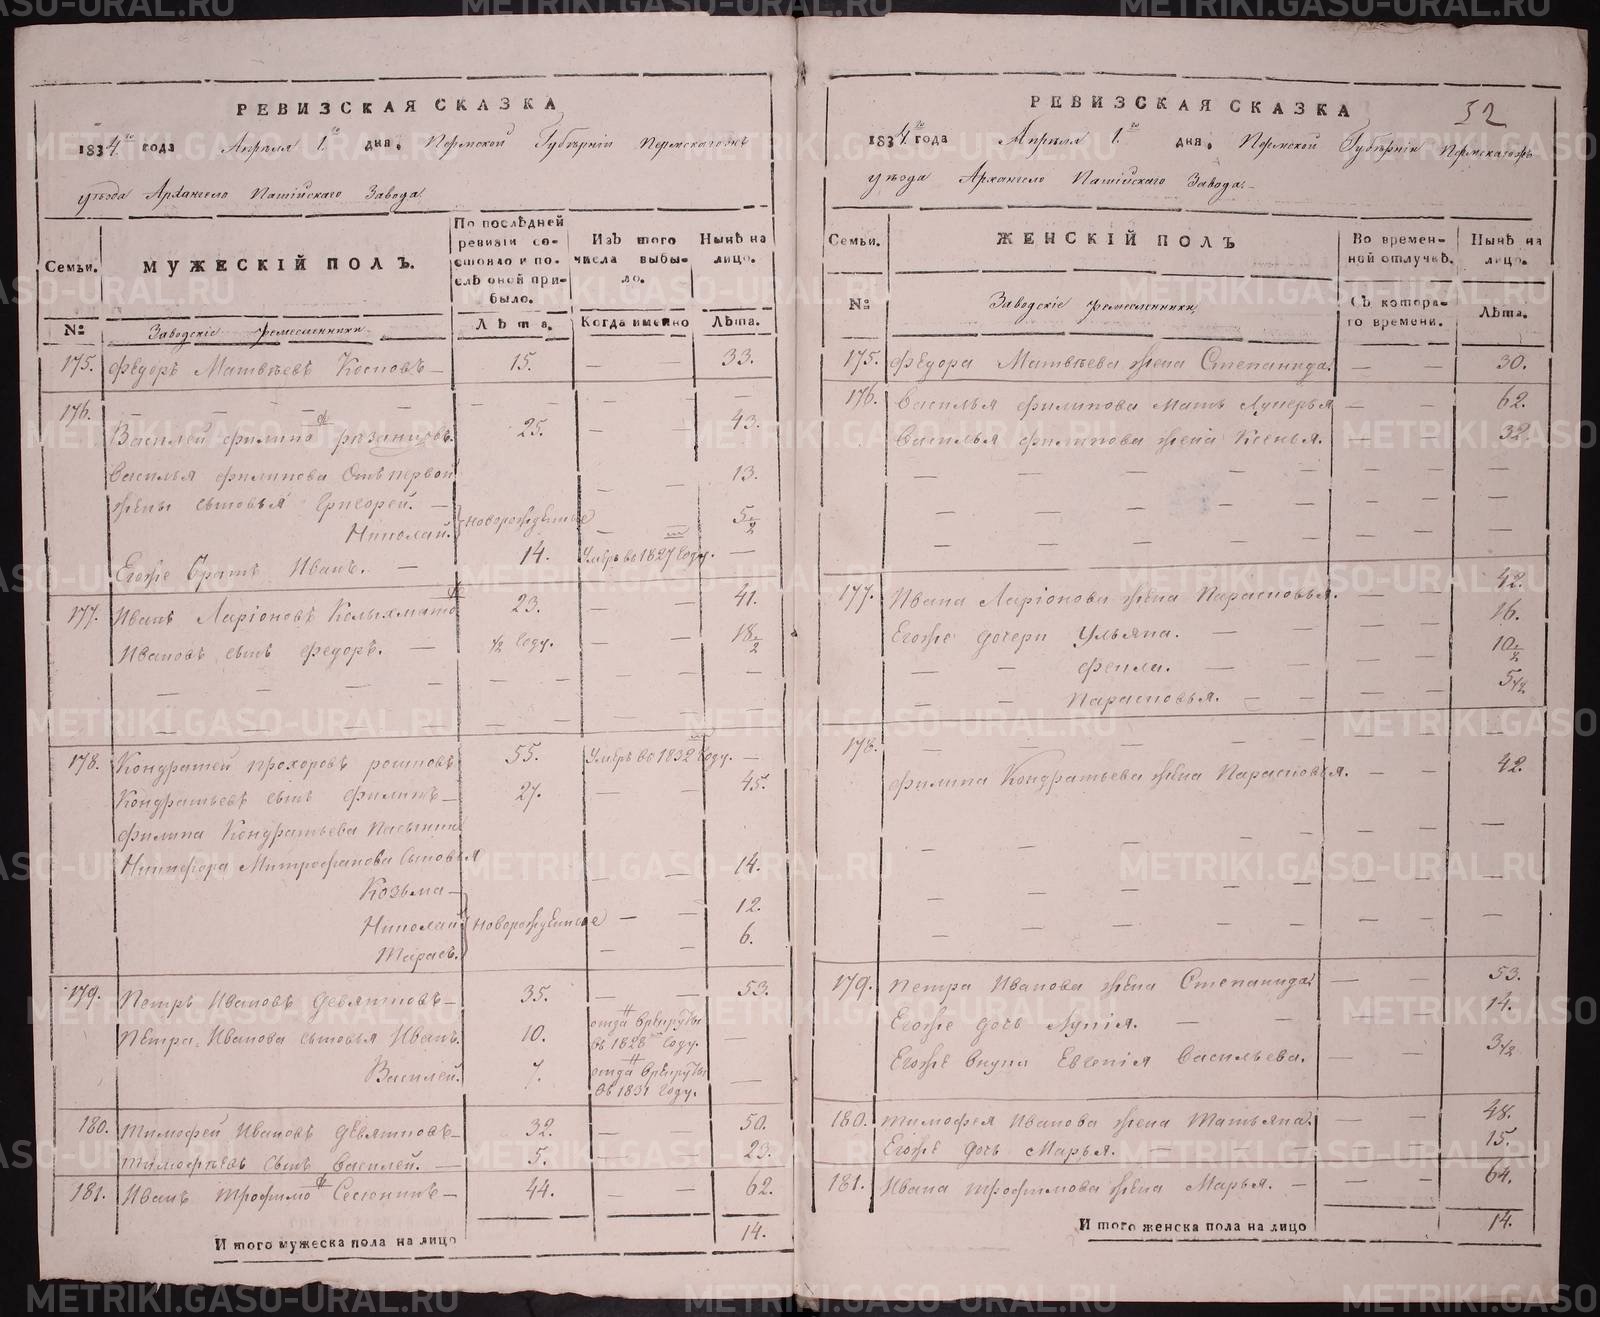 РЕВИЗСКАЯ СКАЗКА
1834го года Апрѣля 1го дня. Пермской Губѣрніи Пермскагожъ
уѣзда Архангело Пашійскаго Завода.
Семьи.
МУЖЕСКІЙ ПОЛЪ.
По послѣдней
ревизіи со-
стояло и по-
слѣ оной при-
было.
Изъ того
числа выбы-
ло.
Нынѣ на
лицо.
№
Заводскіе ремесленники
Лѣта.
Когда именно
Лѣта.
175. Федоръ Матвѣевъ — 15. — — 33.
176. — — — —
Василей Филиповъ 25. — — 43.
Василья Филипова Отъ первой 13.
жены сыновья Григорей. — — —
Николай. новорожденные 5 1/2
Егоже Братъ Иванъ. — 14. Умеръ во 1827 Году. —
177. Иванъ Ларіоновъ 23. — — 41.
Ивановъ сынъ Федоръ. — 1/2 Году. — — 18 1/2
178. Кондратей Прохоровъ 55. Умеръ во 1832 Году. —
Кондратьевъ сынъ Филипъ — 27. — — 45.
Филипа Кондратьева Пасынки
Никифора Митрофанова Сыновья 14.
Козьма —
Николай новорожденные — — 12.
Тарасъ. — — 6.
179. Петръ Ивановъ Девятковъ — 35. — — 53.
Петра Ивановa сыновья Иванъ. 10. отдан въ рекруты
въ 1828 Году. —
Василей. 7. отдан въ рекруты
въ 1831 Году. —
180. Тимофей Ивановъ Девятковъ — 32. — — 50.
Тимофѣевъ сынъ Василей. — 5. — — 23.
181. Иванъ Трофимовъ — 44. — — 62.
Итого мужеска пола на лицо 14.
52
РЕВИЗСКАЯ СКАЗКА
1834го года Апрѣля 1го дня. Пермской Губѣрніи Пермскагожъ
уѣзда Архангело Пашійскаго Завода.
Семьи.
ЖЕНСКІЙ ПОЛЪ
Во времен-
ной отлучкѣ.
Нынѣ на
лицо.
№
Заводскіе ремесленники
Съ котора-
го времени.
Лѣта.
175. Федора Матвѣева жена Степанида. — — 30.
176. Василья Филипова Мать Лукерья — — 62.
Василья Филипова жена Ксенья. — — 32.
177. Ивана Ларіонова жена Парасковья. — — 42.
Егоже дочери Ульяна. — — — 16.
— — Фекла. — — — 10 1/2
— — Парасковья. — — 5 1/2
178. — — — —
Филипа Кондратьева жена Парасковья. — — 42.
179. Петра Иванова жена Степанида. — — 53.
Егоже дочь — — — — 14.
Егоже Внука Евгенія Васильева. — — 3 1/2
180. Тимофея Иванова жена Татьяна. — — 48.
Егоже дочь Марья. — — — — 15.
181. Ивана Трофимова жена Марья. — — — 64.
Итого женска пола на лицо 14.
METRIKI.GASO-URAL.RU